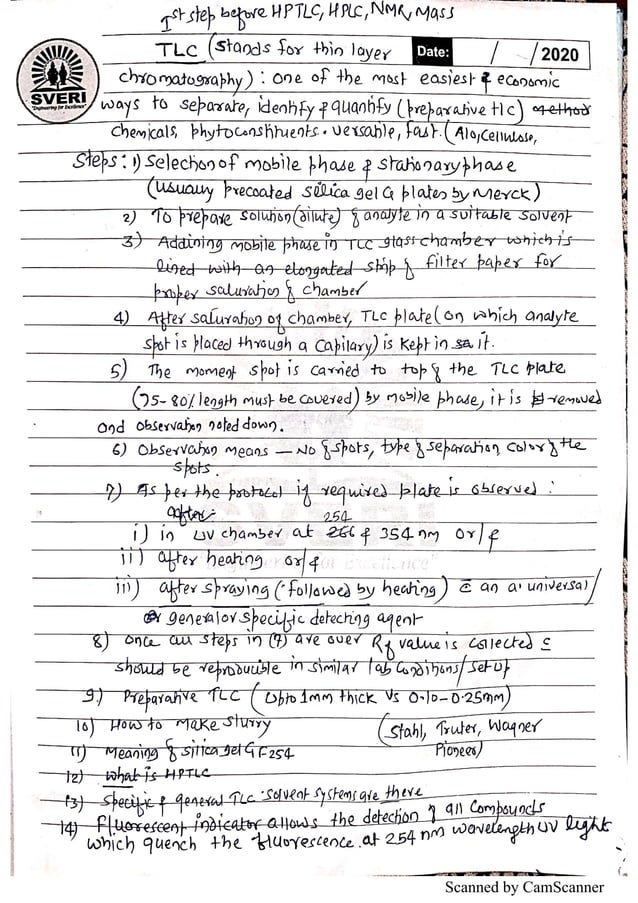 Ist step before HPTLC, HPLC, NMR, Mass
TLC (stands for thin layer
Date: / / 2020
SVERI
"Engineering for Excellence"
chromatography) : one of the most easiest & economic
ways to separate, identify & quantify (preparative tlc) method
chemicals, phytoconstituents. versatile, fast. (Al2O3, Cellulose,
Steps: 1) Selection of mobile phase & stationary phase
(usually precoated silica gel G plates by Merck)
2) To prepare solution (dilute) of analyte in a suitable solvent
3) Addining mobile phase in TLC glass chamber which is
lined with an elongated strip of filter paper for
proper saturation of chamber
4) After saturation of chamber, TLC plate (on which analyte
spot is placed through a capilary) is kept in it.
5) The moment spot is carried to top of the TLC plate
(75-80% length must be covered) by mobile phase, it is removed
and observation noted down.
6) Observation means — No of spots, type of separation, color of the
spots.
7) As per the protocol if required plate is observed :
after: 254
i) in UV chamber at & 354 nm or/&
ii) after heating or/&
iii) after spraying (followed by heating) c̄ an a universal/
general or specific detecting agent
8) once all steps in (7) are over Rf value is collected &
should be reproducible in similar lab conditions/set up
9) Preparative TLC (upto 1mm thick vs 0.10-0.25mm)
10) How to make slurry
(Stahl, Truter, Wagner
Pioneer)
11) Meaning of silica gel GF254
12) what is HPTLC
13) Specific & general TLC solvent systems are there
14) Fluorescent indicator allows the detection of all compounds
which quench the fluorescence at 254 nm wavelength UV light
Scanned by CamScanner